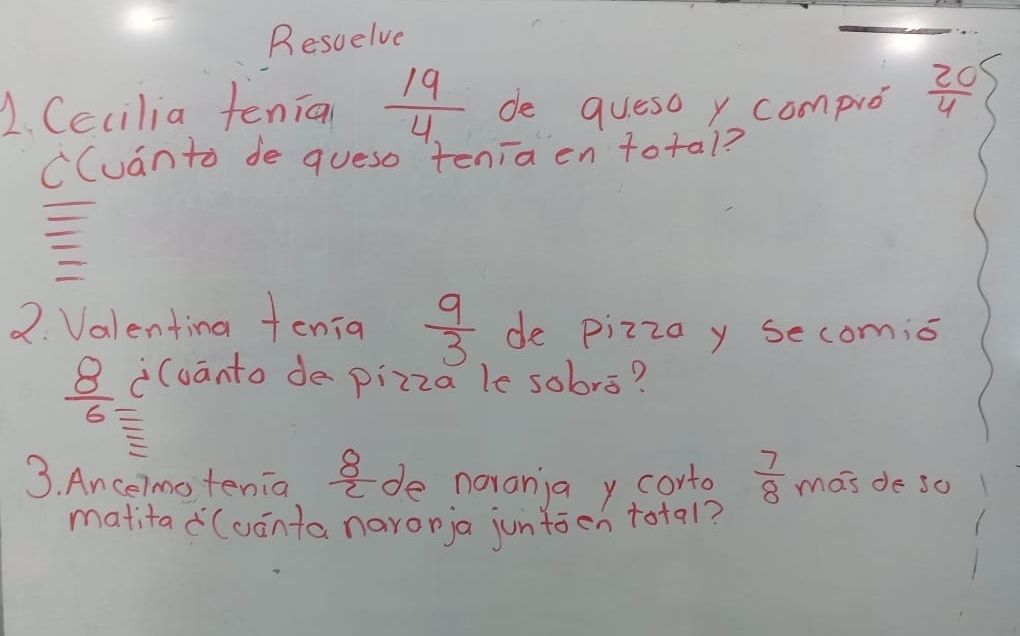 Resuelve
1. Cecilia tenía 19/4 de queso y compró 20/4
¿Cuánto de queso tenía en total?
2. Valentina tenía 9/3 de pizza y se comió
8/6 ¿Cuánto de pizza le sobró?
3. Ancelmo tenía 8/2 de naranja y corto 7/8 más de su
matita ¿Cuánta naranja juntó en total?